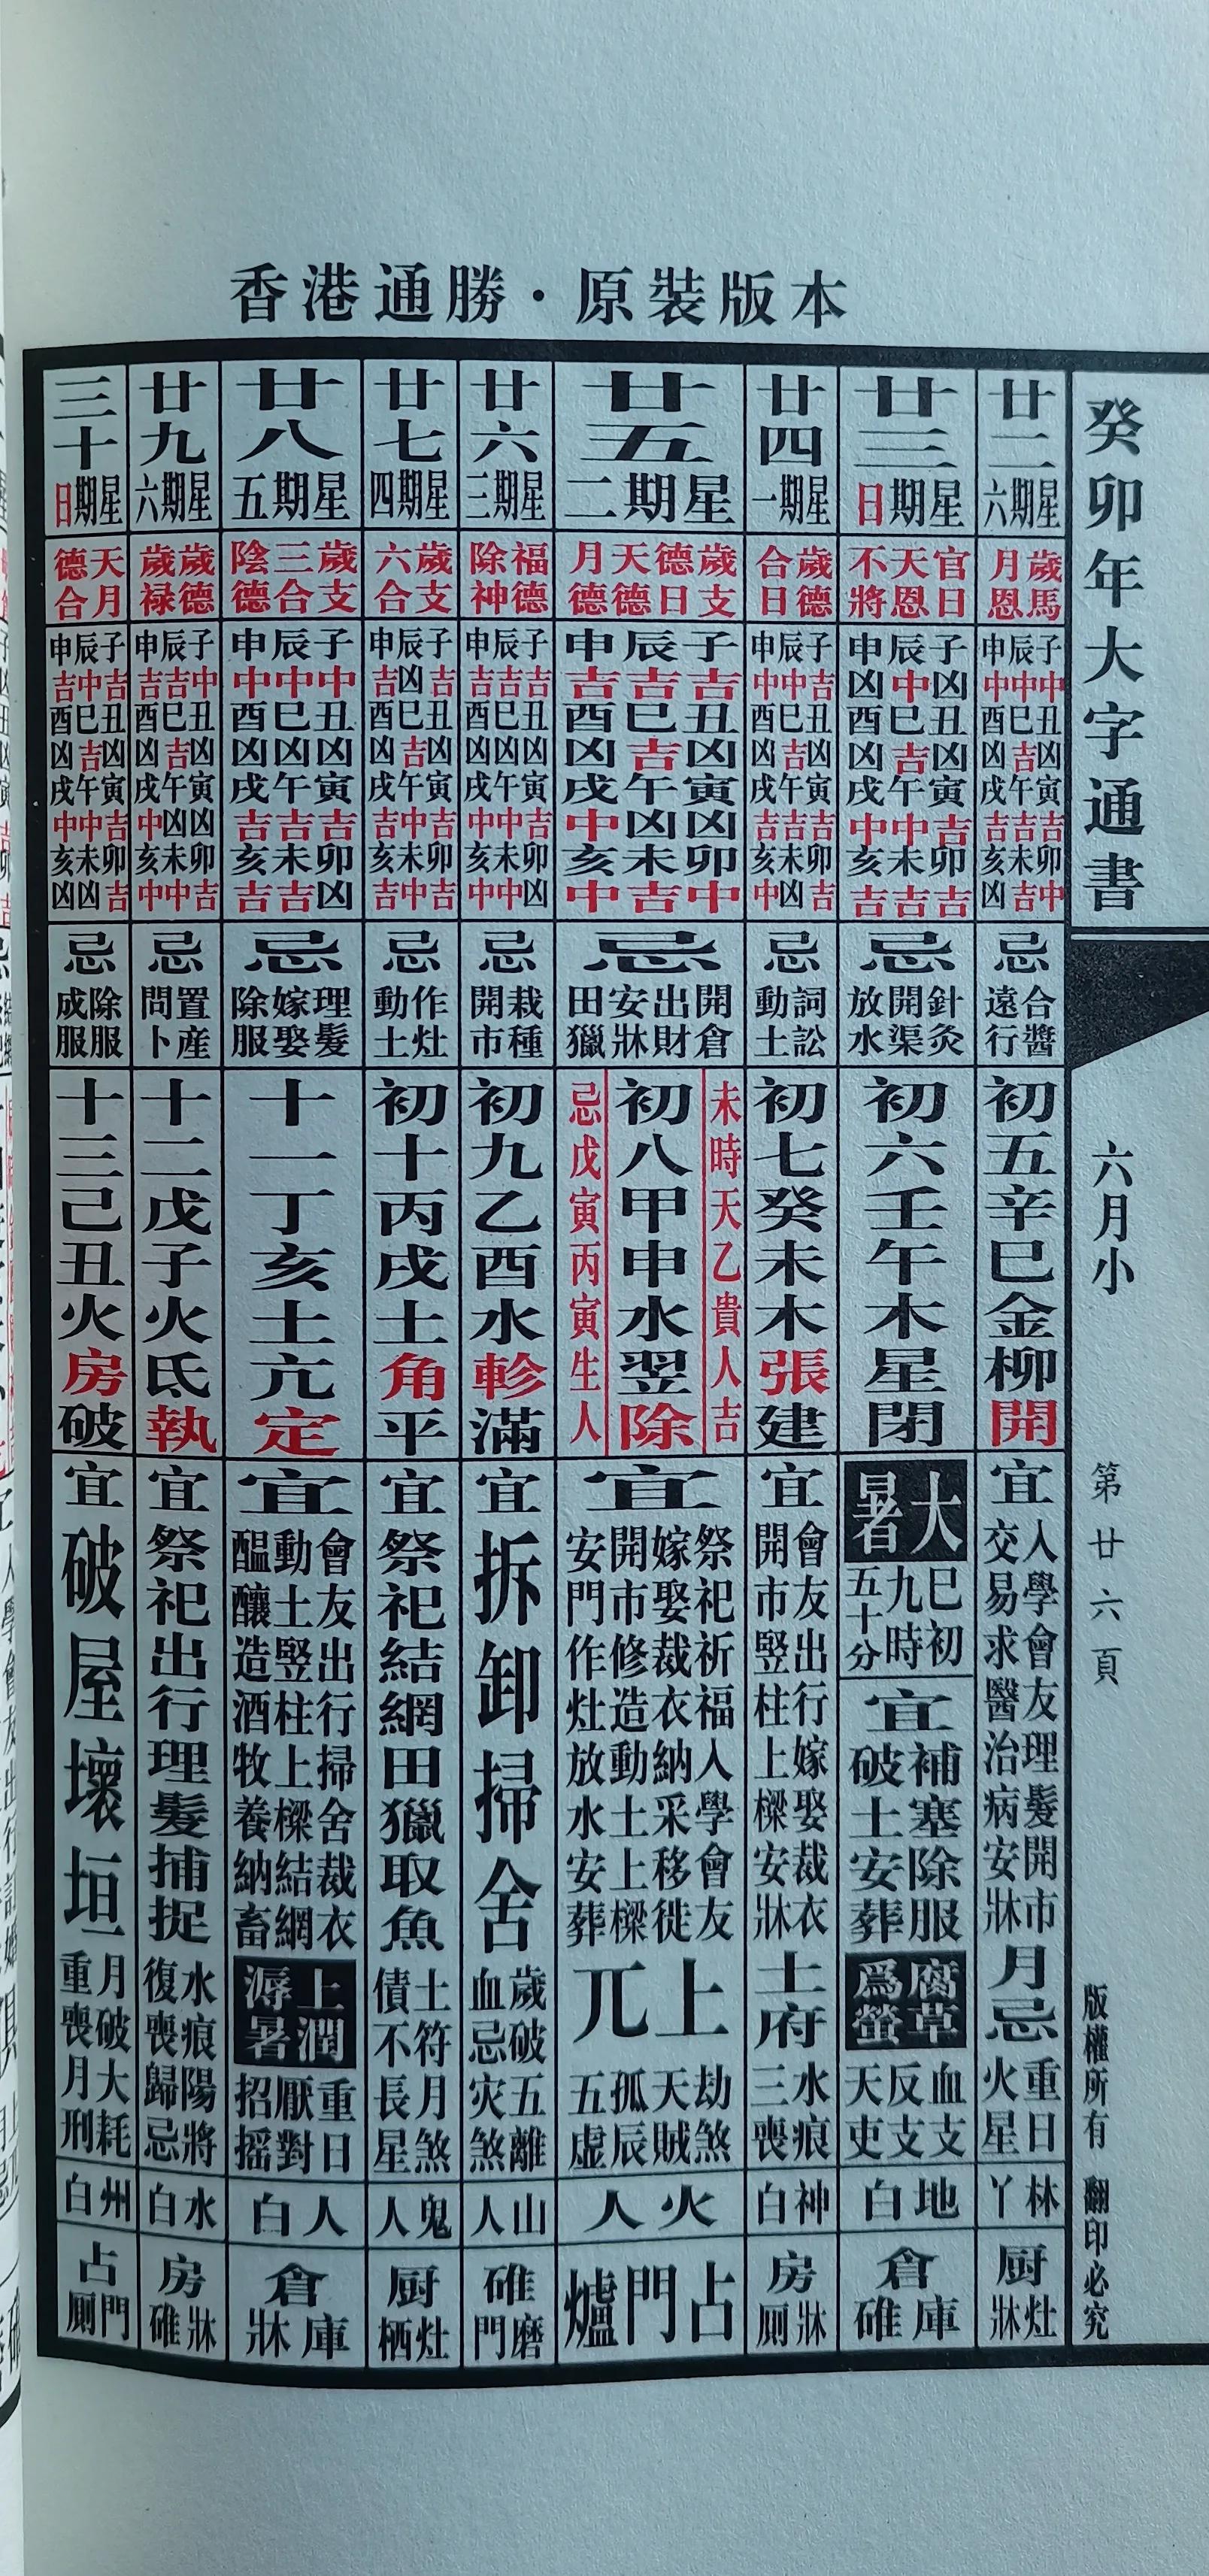 香港通勝·原裝版本
癸卯年大字通書
六月小
第廿六頁
版權所有 翻印必究
廿二
星期六
歲馬
月恩
子中丑凶寅吉卯中
辰中巳吉午吉未吉
申中酉凶戌吉亥凶
忌
合醬
遠行
初五辛巳金柳開
宜
人學會友理髮開市
交易求醫治病安牀
月忌
重日
火星
林丫
厨灶牀
廿三
星期日
官日
天恩
不將
子凶丑凶寅吉卯吉
辰中巳吉午中未吉
申凶酉凶戌中亥吉
忌
針灸
開渠
放水
初六壬午木星閉
大暑
巳初
九時
五十分
宜
補塞除服
破土安葬
腐草
爲螢
血支
反支
天吏
地白
倉庫碓
廿四
星期一
歲德
合日
子吉丑凶寅吉卯吉
辰中巳吉午吉未凶
申中酉凶戌吉亥中
忌
詞訟
動土
初七癸未木張建
宜
會友出行嫁娶裁衣
開市竪柱上樑安牀
土府
水痕
三喪
神白
房牀厠
廿五
星期二
歲支
德日
天德
月德
子吉丑凶寅凶卯中
辰吉巳吉午凶未吉
申吉酉凶戌中亥中
忌
開倉
出財
安牀
田獵
未時天乙貴人吉
初八甲申水翌除
忌戊寅丙寅生人
宜
祭祀祈福入學會友
嫁娶裁衣納采移徙
開市修造動土上樑
安門作灶放水安葬
上兀
劫煞
天賊
孤辰
五虛
火人
占門爐
廿六
星期三
福德
除神
子吉丑凶寅吉卯凶
辰吉巳凶午中未中
申吉酉凶戌中亥中
忌
栽種
開市
初九乙酉水軫滿
宜
拆卸掃舍
歲破五離
血忌灾煞
山人
碓磨門
廿七
星期四
歲支
六合
子吉丑凶寅吉卯吉
辰凶巳吉午中未中
申吉酉凶戌吉亥吉
忌
作灶
動土
初十丙戌土角平
宜
祭祀結網田獵取魚
土符月煞
債不長星
鬼人
厨灶栖
廿八
星期五
歲支
三合
陰德
子中丑凶寅吉卯凶
辰中巳凶午吉未吉
申中酉凶戌吉亥吉
忌
理髮
嫁娶
除服
十一丁亥土亢定
宜
會友出行掃舍裁衣
動土竪柱上樑結網
醞釀造酒牧養納畜
上潤
溽暑
重日
厭對
招搖
人白
倉庫牀
廿九
星期六
歲德
歲禄
子中丑凶寅凶卯吉
辰吉巳吉午凶未中
申吉酉凶戌中亥中
忌
置產
問卜
十二戊子火氐執
宜
祭祀出行理髮捕捉
水痕陽將
復喪歸忌
水白
房牀碓
三十
星期日
天月
德合
子吉丑凶寅吉卯吉
辰中巳吉午中未凶
申吉酉凶戌中亥凶
忌
除服
成服
十三己丑火房破
宜
破屋壞垣
月破大耗
重喪月刑
州白
占門厠